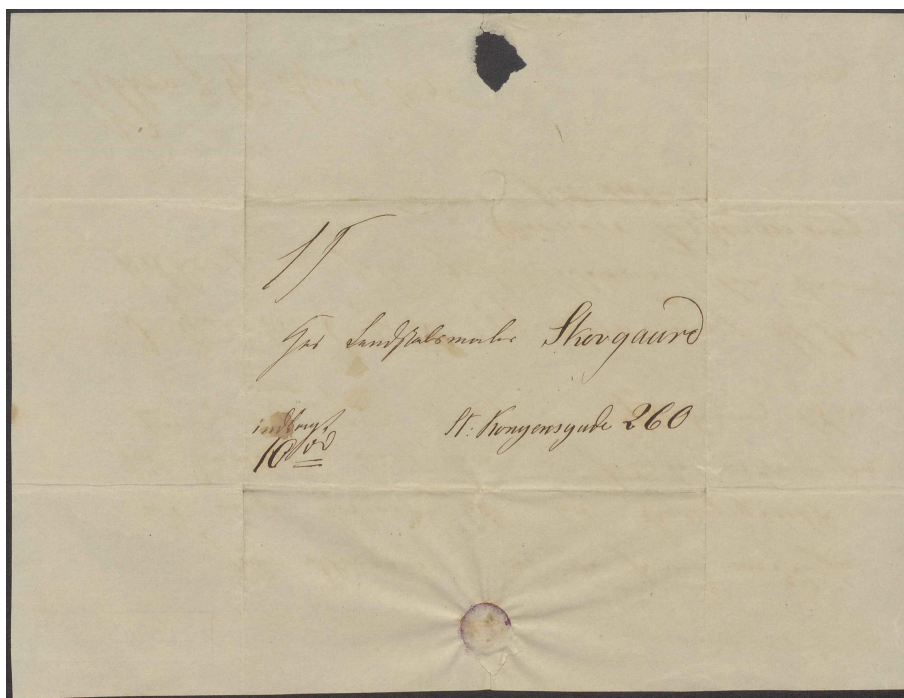 S T
Her Landskabsmaler Skovgaard
indlagt
10 rd
St: Kongensgade 260